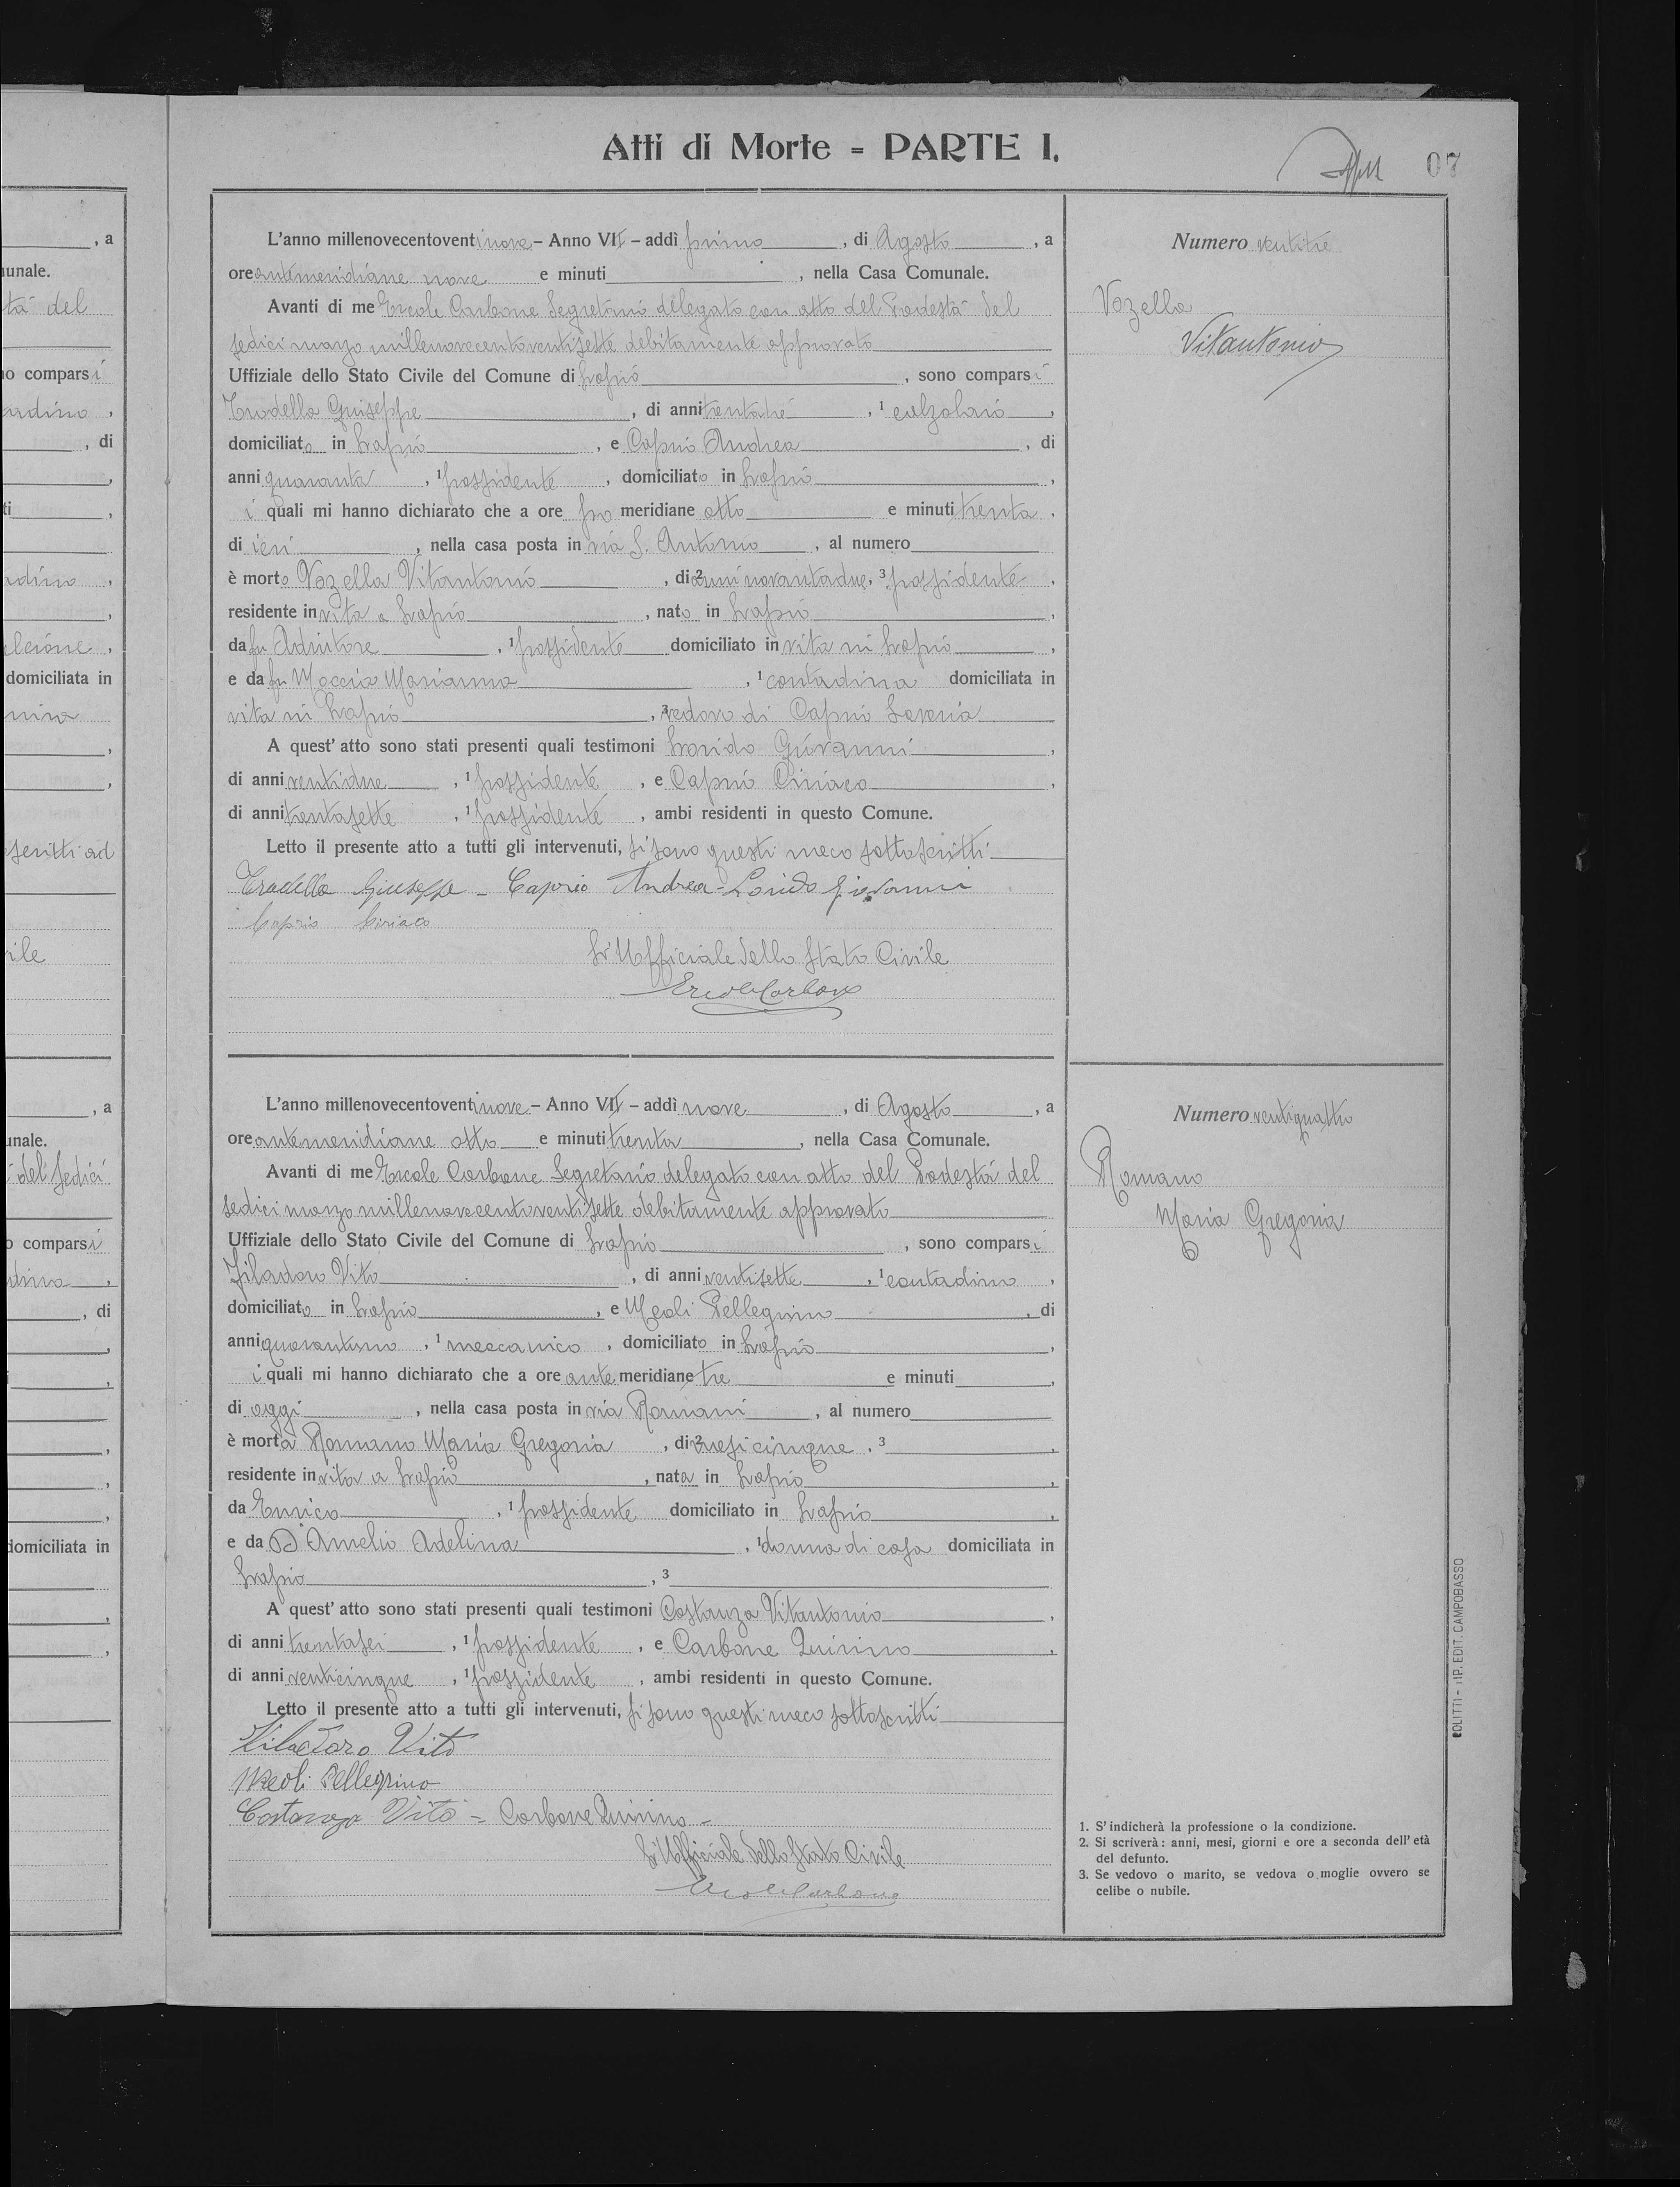 Atti di Morte = PARTE I.
07
L'anno millenovecentoventinove - Anno VII - addì primo, di Agosto, a
ore antimeridiane nove e minuti, nella Casa Comunale.
Avanti di me Ercole Carbone Segretario delegato con atto del Podestà del
sedici marzo millenovecentoventisette debitamente approvato
Uffiziale dello Stato Civile del Comune di Lapio, sono comparsi
Trodella Giuseppe, di anni trentatré, 1 calzolaio,
domiciliato in Lapio, e Caprio Andrea, di
anni quaranta, 1 possidente, domiciliato in Lapio,
i quali mi hanno dichiarato che a ore po meridiane otto e minuti trenta,
di ieri, nella casa posta in via S. Antonio, al numero
è morto Vozella Vitantonio, di 2 anni novantadue, 3 possidente,
residente in vita a Lapio, nato in Lapio,
da fu Adiutore, 1 possidente domiciliato in vita in Lapio,
e da fu Moccia Marianna, 1 contadina domiciliata in
vita in Lapio, 3 vedovo di Caprio Saveria
A quest'atto sono stati presenti quali testimoni Lonido Giovanni,
di anni ventidue, 1 possidente, e Caprio Ciriaco,
di anni trentasette, 1 possidente, ambi residenti in questo Comune.
Letto il presente atto a tutti gli intervenuti, si sono questi meco sottoscritti
Trodella Giuseppe - Caprio Andrea - Lonido Giovanni
Caprio Ciriaco
L'Ufficiale dello Stato Civile
Ercole Carbone
Numero ventitré
Vozella
Vitantonio
L'anno millenovecentoventinove - Anno VII - addì nove, di Agosto, a
ore antemeridiane otto e minuti trenta, nella Casa Comunale.
Avanti di me Ercole Carbone Segretario delegato con atto del Podestà del
sedici marzo millenovecentoventisette debitamente approvato
Uffiziale dello Stato Civile del Comune di Lapio, sono comparsi
Filadoro Vito, di anni ventisette, 1 contadino,
domiciliato in Lapio, e Meoli Pellegrino, di
anni quarantuno, 1 meccanico, domiciliato in Lapio,
i quali mi hanno dichiarato che a ore ante meridiane tre e minuti,
di oggi, nella casa posta in via Romani, al numero
è morta Romano Maria Gregoria, di 2 mesi cinque, 3
residente in vita a Lapio, nata in Lapio,
da Enrico, 1 possidente domiciliato in Lapio,
e da D'Amelio Adelina, 1 donna di casa domiciliata in
Lapio, 3
A quest'atto sono stati presenti quali testimoni Costanza Vitantonio,
di anni trentasei, 1 possidente, e Carbone Quirino,
di anni venticinque, 1 possidente, ambi residenti in questo Comune.
Letto il presente atto a tutti gli intervenuti, si sono questi meco sottoscritti
Filadoro Vito
Meoli Pellegrino
Costanza Vito - Carbone Quirino -
L'Ufficiale dello Stato Civile
Ercole Carbone
Numero ventiquattro
Romano
Maria Gregoria
1. S'indicherà la professione o la condizione.
2. Si scriverà: anni, mesi, giorni e ore a seconda dell'età
del defunto.
3. Se vedovo o marito, se vedova o moglie ovvero se
celibe o nubile.
EDIT. CAMPOBASSO
, a
tà del
comparsi
, di
domiciliata in
, a
del sedici
comparsi
, di
domiciliata in